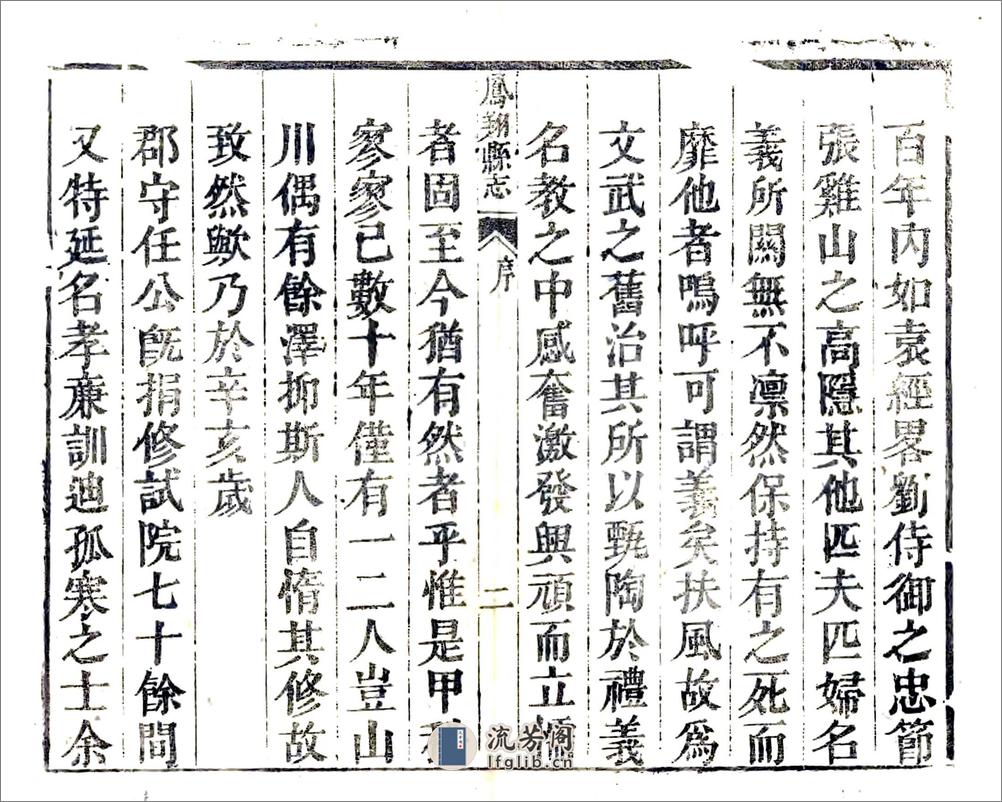 百年內如袁經畧劉侍御之忠節
張雞山之高隱其他匹夫匹婦名
義所關無不凛然保持有之死而
靡他者嗚呼可謂義矣扶風故爲
文武之舊治其所以甄陶於禮義
名教之中感奮激發興頑而立懦
鳳翔縣志
序
二
者固至今猶有然者乎惟是甲科
寥寥已數十年僅有一二人豈山
川偶有餘澤抑斯人自惰其修故
致然歟乃於辛亥歲
郡守任公旣捐修試院七十餘間
又特延名孝廉訓迪孤寒之士余
流芳阁
lfglib.cn